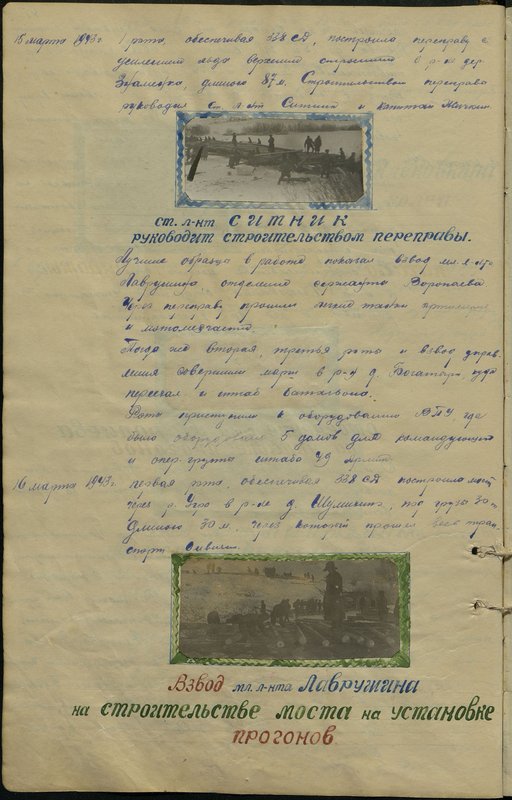 15 марта 1943 г. 1 рота, обеспечивая 338 СД, построила переправу с
усилением льда верхним строением в р-не дер.
Знаменка, длиною 87 м. Строительством переправы
руководил ст. л-нт Ситник и капитан
ст. л-нт СИТНИК
РУКОВОДИТ СТРОИТЕЛЬСТВОМ ПЕРЕПРАВЫ.
Лучшие образцы в работе показал взвод мл. л-та
Лаврушина, отделение сержанта Воропаева
Через переправу прошли легкие танки артиллерия
и мотомехчасти.
Тогда же вторая, третья роты и взвод управ-
ления совершили марш в р-н д. Богатыри куда
переехал и штаб батальона.
Роты приступили к оборудованию ВПУ, где
было оборудовано 5 домов для командующего
и опер-группы штаба 49 армии.
16 марта 1943 г. первая рота, обеспечивая 338 СД построила мост
через р. Угра в р-не д. под груз 30 т
длиною 30 м. через который прошел весь тран-
спорт дивизии.
Взвод мл. л-нта Лаврушина
на строительстве моста на установке
прогонов.